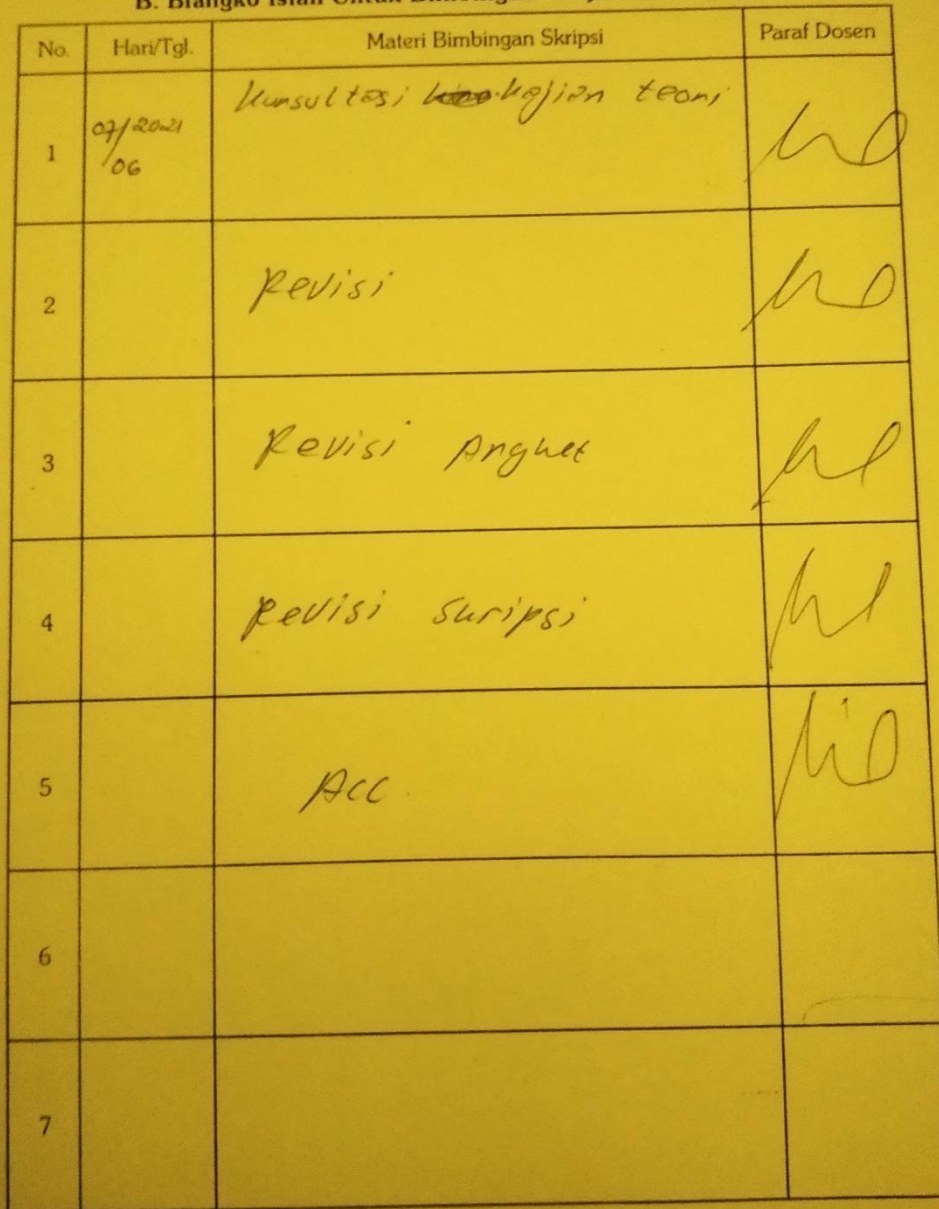 B. Blangko Isian Untuk
No. Hari/Tgl. Materi Bimbingan Skripsi Paraf Dosen
1 07/2021 Konsultasi kajian teori
06
2 Revisi
3 Revisi Angket
4 Revisi Skripsi
5 Acc
6
7